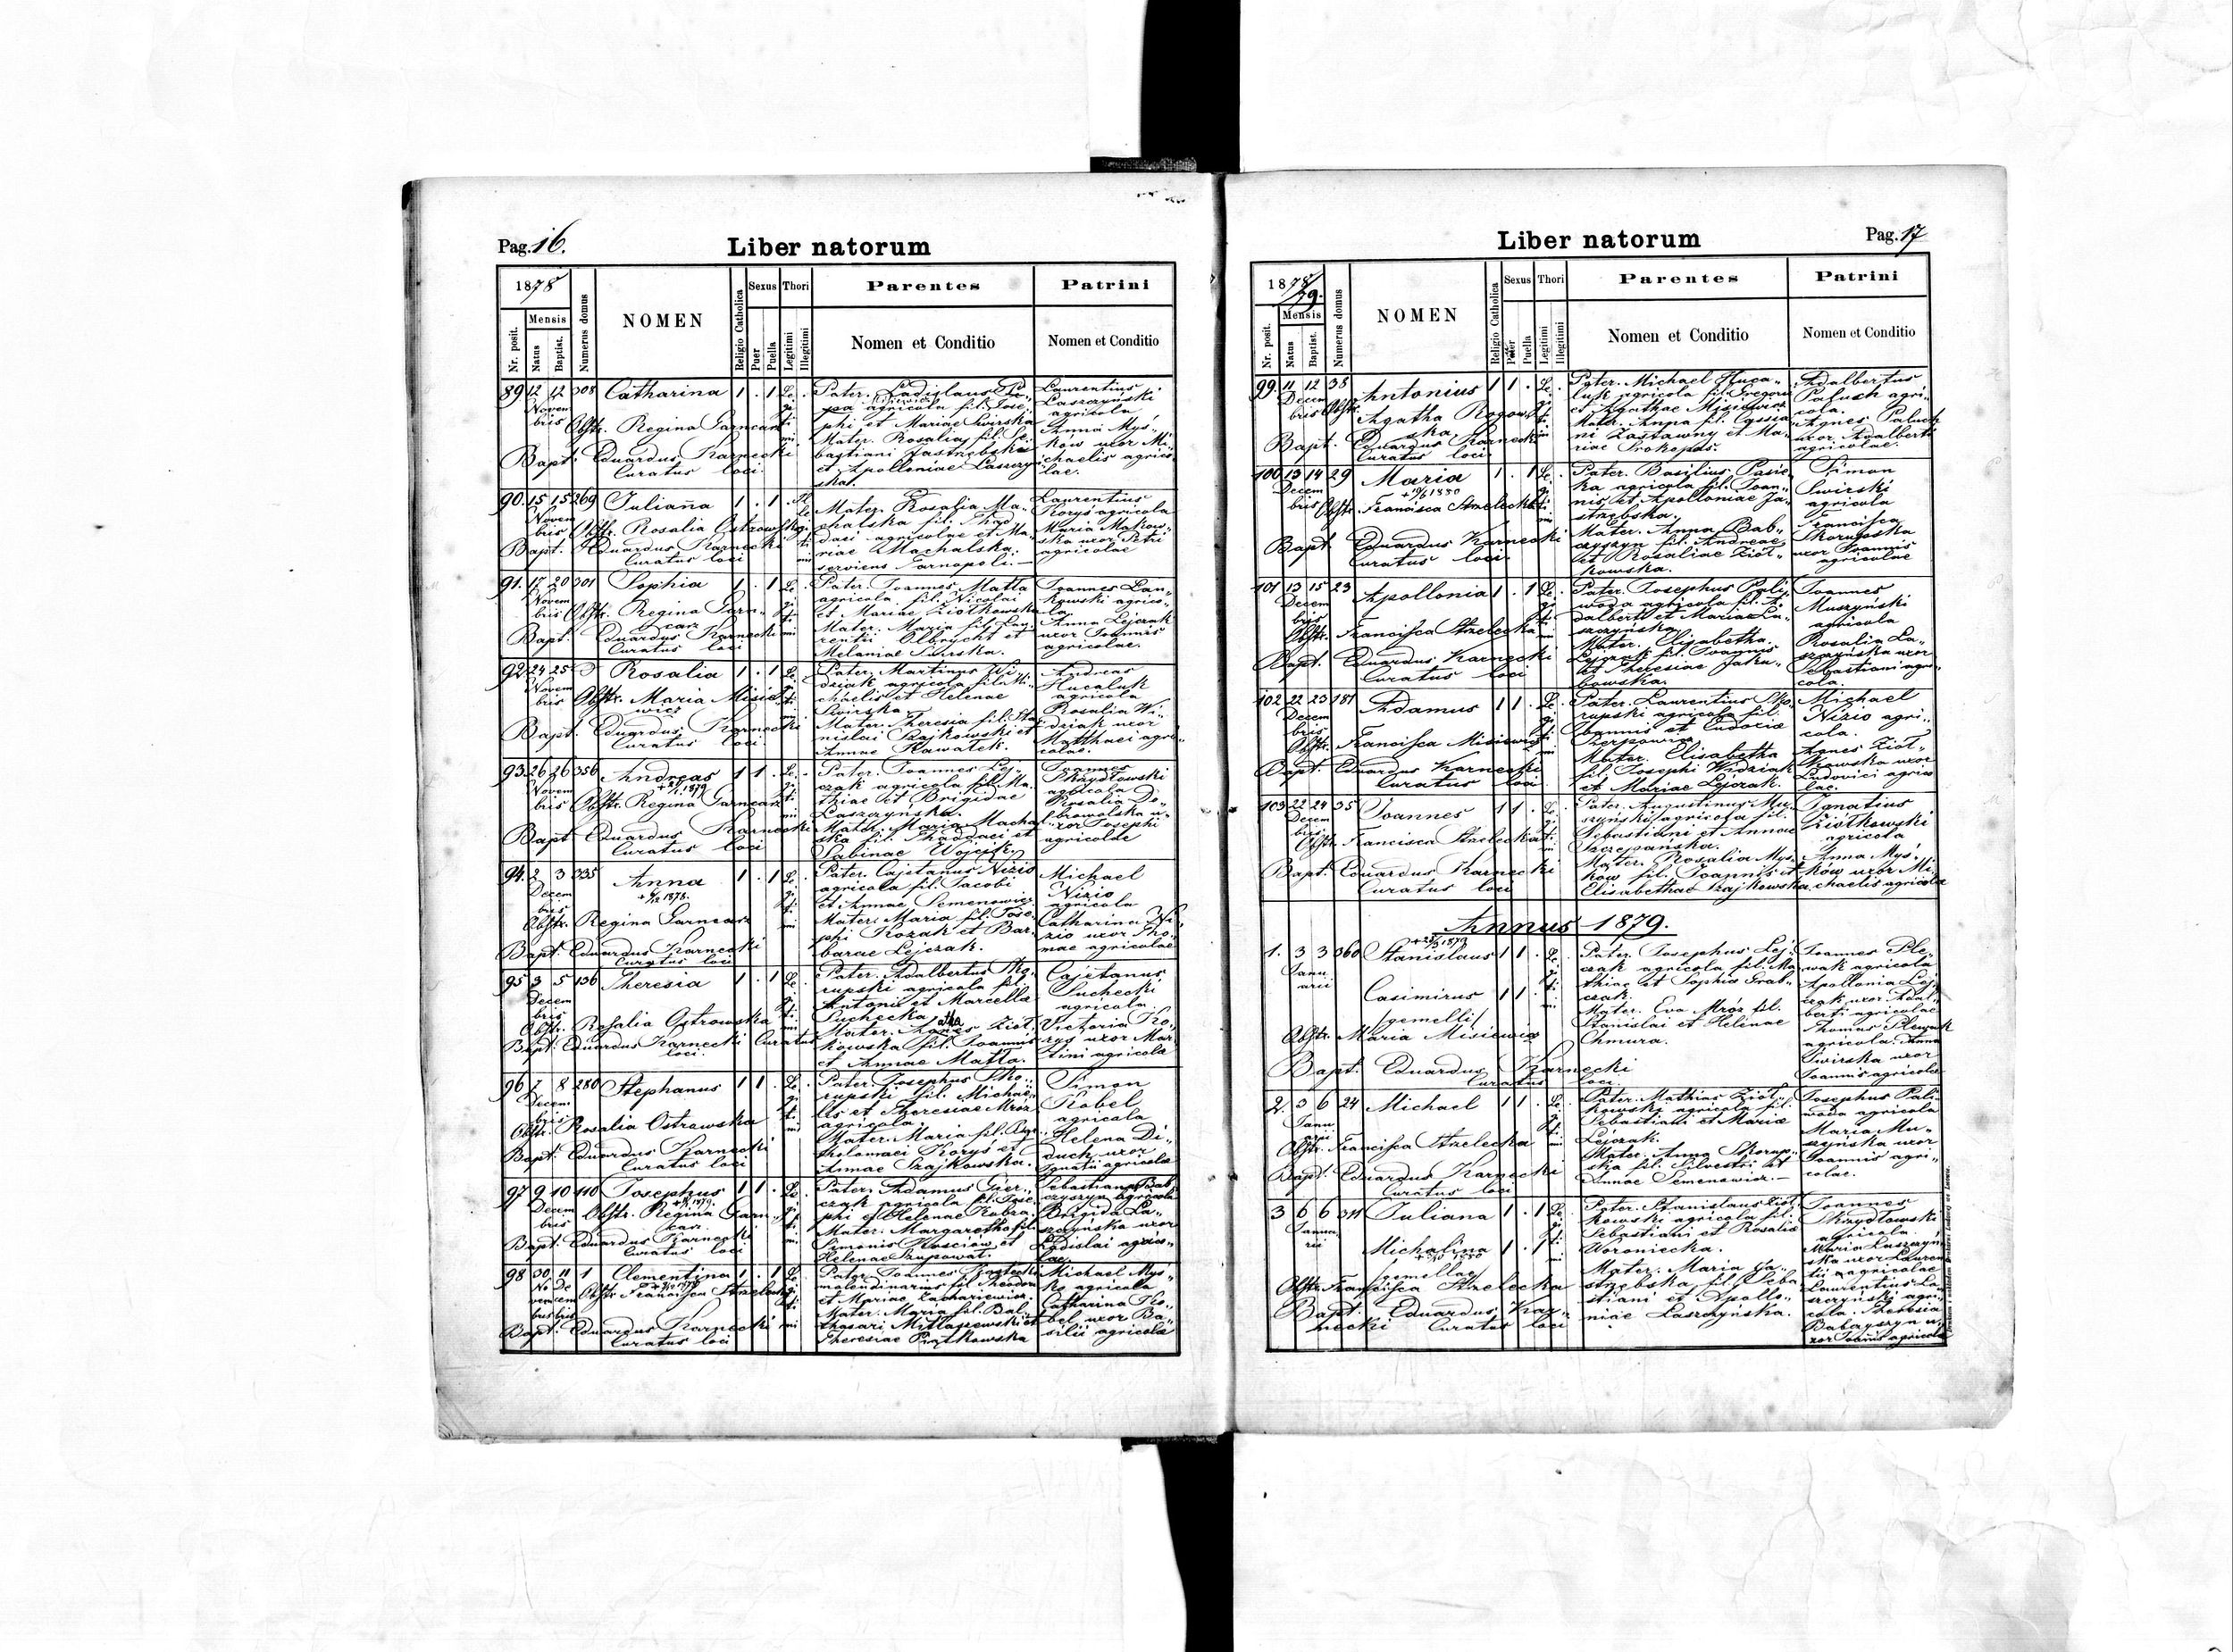 Pag. 16.
Liber natorum
1878
Mensis
Nr. posit.
Natus
Baptist.
Numerus domus
NOMEN
Religio Catholica
Sexus
Puer
Puella
Thori
Legitimi
Illegitimi
Parentes
Nomen et Conditio
Patrini
Nomen et Conditio
89 12 12 308 Catharina 1 . 1
Novem
bris
Obstr. Regina Garncarz
Bapt. Eduardus Karnecki
Curatus loci
Pater. Ladislaus
agricola fil. Jose
phi et Mariae Swirska
Mater. Rosalia fil. Se
bastiani Jastrzebska
et Apolloniae Laszczyń
ska.
Laurentius
Laszczyński
agricola
Anna Myś
ków uxor Mi
chaelis agrico
lae.
90. 15 15 269 Julianna 1 . 1
Novem
bris
Obstr. Rosalia Ostrowska
Bapt. Eduardus Karnecki
Curatus loci
Mater. Rosalia Ma
chalska fil. Thad
daei agricolae et Ma
riae Machalska.
serviens Tarnopoli.
Laurentius
Korys agricola
Maria Makow
ska uxor Petri
agricolae
91. 17 20 301 Sophia 1 . 1
Novem
bris
Obstr. Regina Garn
carz
Bapt. Eduardus Karnecki
Curatus loci
Pater. Joannes Matla
agricola fil. Nicolai
et Mariae Ziółkowska
Mater. Maria fil. Lau
rentii Olbrycht et
Melaniae Swirska.
Joannes Lan
kowski agrico
la.
Anna Lejczak
uxor Joannis
agricolae.
92 24 25 3 Rosalia 1 . 1
Novem
bris
Obstr. Maria Misie
wicz
Bapt. Eduardus Karnecki
Curatus loci
Pater. Martinus Wi
dziak agricola fil. Mi
chaelis et Helenae
Swirska
Mater. Theresia fil. Sta
nislai Szajkowski et
Annae Kawalek.
Andreas
Hucaluk
agricola
Rosalia Wi
dziak uxor
Matthaei agri
colae.
93. 26 26 356 Andreas 1 1 .
Novem
bris
Obstr. Regina Garncarz
Bapt Eduardus Karnecki
Curatus loci
Pater. Joannes Lej
czak agricola fil. Ma
thiae et Brigidae
Laszczynska.
Mater. Maria Machal
ska fil. Thaddaei et
Sabinae Wojcik.
Joannes
Skrzydłowski
agricola
Rosalia Do
browolska u
xor Josephi
agricolae
94. 2 3 335 Anna 1 . 1
Decem
bris
Obstr. Regina Garncarz
Bapt. Eduardus Karnecki
Curatus loci
Pater. Cajetanus Nizio
agricola fil. Jacobi
et Annae Semenowicz
Mater. Maria fil. Jose
phi Kozak et Bar
barae Lejczak.
Michael
Nizio
agricola
Catharina Ni
zio uxor Tho
mae agricolae
95 3 5 136 Theresia 1 . 1
Decem
bris
Obstr. Rosalia Ostrowska
Bapt. Eduardus Karnecki Curatus
loci.
Pater. Adalbertus Sko
rupski agricola fil.
Antonii et Marcella
Suchecka
Mater. Ziół
kowska fil. Joannis
et Annae Matla.
Cajetanus
Suchecki
agricola
Victoria Ko
rys uxor Mar
tini agricola
96 7 8 280 Stephanus 1 1 .
Decem
bris
Obstr. Rosalia Ostrowska
Bapt. Eduardus Karnecki
Curatus loci
Pater. Josephus Sko
rupski fil. Michae
lis et Theresiae Mróz
agricola.
Mater. Maria fil. Bar
tholomaei Korys et
Annae Szajkowska.
Simon
Kobel
agricola
Helena Di
duch uxor
Ignatii agricola
97 9 10 110 Josephus 1 1 .
Decem
bris
Obstr. Regina Garn
carz
Bapt. Eduardus Karnecki
Curatus loci
Pater. Adamus
agricola fil. Jose
phi et Helenae
Mater. Margaretha fil.
Simonis et
Helenae
Sebastianus Bab
czyszyn agricola
Brigida La
szczyńska uxor
Ladislai agrico
lae.
98 30 11 1 Clementina 1 . 1
Obstr. Francisca Strzelecka
Bapt. Eduardus Karnecki
Curatus loci
Pater Joannes
molendinarius fil. Theodori
et Mariae Zachariewicz.
Mater. Maria fil. Bal
thasari et
Theresiae Piątkowska
Michael Myś
ko agricola
Catharina Ko
bel uxor Ba
silii agricola
Liber natorum
Pag. 17
1878/79.
Mensis
Nr. posit.
Natus
Baptist.
Numerus domus
NOMEN
Religio Catholica
Sexus
Puer
Puella
Thori
Legitimi
Illegitimi
Parentes
Nomen et Conditio
Patrini
Nomen et Conditio
99 11 12 38 Antonius 1 1 .
Decem
bris
Obstr. Agatha Rogow
ska
Bapt. Eduardus Karnecki
Curatus loci
Pater. Michael Huca
luk agricola fil. Gregorii
et Agathae Misiewicz
Mater. Anna fil.
Zastawny et Ma
riae Prokopas.
Adalbertus
Paluch agri
cola.
Agnes Paluch
uxor Adalberti
agricolae.
100 13 14 29 Maria 1 . 1
Decem
bris
Obstr. Francisca Strzelecka
Bapt. Eduardus Karnecki
Curatus loci
Pater. Basilius Pasie
ka agricola fil. Joan
nis et Apolloniae Ja
strzebska.
Mater. Anna Bab
czyszyn fil. Andreae
et Rosaliae Ziół
kowska.
Simon
Swirski
agricola
Francisca
Skorupska
uxor Joannis
agricolae
101 13 15 23 Apollonia 1 . 1
Decem
bris
Obstr. Francisca Strzelecka
Bapt. Eduardus Karnecki
Curatus loci
Pater. Josephus Pali
woda agricola fil. A
dalberti et Mariae La
szczyńska
Mater. Elisabetha
Lejczak fil. Joannis
et Theresiae Jaku
bowska.
Joannes
Muszyński
agricola
Rosalia La
szczyńska uxor
Sebastiani agri
cola.
102 22 23 181 Adamus 1 1 .
Decem
bris
Obstr. Francisca Misiewicz
Bapt. Eduardus Karnecki
Curatus loci
Pater. Laurentius Sko
rupski agricola fil.
Joannis et Eudocia
Mater. Elisabetha
fil. Josephi Widziak
et Mariae Lejczak.
Michael
Nizio agri
cola.
Agnes Ziół
kowska uxor
Ludovici agrico
lae.
103 22 24 35 Joannes 1 1 .
Decem
bris
Obstr. Francisca Strzelecka
Bapt. Eduardus Karnecki
Curatus loci
Pater. Augustinus Mu
szyński agricola fil.
Sebastiani et Annae
Szczepańska.
Mater. Rosalia Myś
ków fil. Joannis et
Elisabethae Szajkowska
Ignatius
Ziółkowski
agricola
Anna Myś
ków uxor Mi
chaelis agricola
Annus 1879.
1. 3 3 360 Stanislaus 1 1 .
Janu
arii
Casimirus 1 1 .
gemelli
Obstr. Maria Misiewicz
Bapt. Eduardus Karnecki
Curatus loci.
Pater. Josephus Lej
czak agricola fil. Ma
thiae et Sophia Grab
czak.
Mater. Eva Mróz fil.
Stanislai et Helenae
Chmura.
Joannes Ple
wak agricola
Apollonia Lej
czak uxor Adal
berti agricolae
Thomas Plewak
agricola. Anna
Swirska uxor
Joannis agricolae
2. 3 6 24 Michael 1 1 .
Janu
arii
Obstr. Francisca Strzelecka
Bapt. Eduardus Karnecki
Curatus loci
Pater. Mathias Ziół
kowski agricola fil.
Sebastiani et Maria
Lejczak.
Mater. Anna Skorup
ska fil. Silvestri et
Annae Semenowicz.
Josephus Pali
woda agricola
Maria Mu
szyńska uxor
Joannis agri
colae.
3 6 6 311 Juliana 1 . 1
Janua
rii
Michalina 1 . 1
gemellae
Obstr. Francisca Strzelecka
Bapt. Eduardus Kar
necki Curatus loci
Pater. Stanislaus Ziół
kowski agricola fil.
Sebastiani et Rosalia
Woroniecka.
Mater. Maria Ja
strzebska fil. Seba
stiani et Apollo
niae Laszczyńska.
Joannes
Skrzydłowski
agricola
Maria Laszczyń
ska uxor Lauren
tii agricolae
Laurentius La
szczyński agri
cola. Theresia
Babczyszyn u
xor Joannis agricola